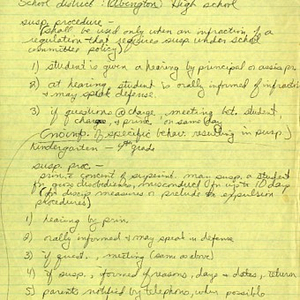 School district: (Abington) High school
susp. procedure -
(shall be used only when an infraction of a
regulation that requires susp under school
committee policy)
1) student is given a hearing by principal or assis. pr
2) at hearing, student is orally informed of infractn
& may speak defense.
3) if questions @ charge, meeting bet. student,
if charger & princ on same day
(no info. of specific behav. resulting in susp.)
kindergarten - grade
susp. proc -
princ & consent of superint. may susp. a student
for gross disobedience, misconduct for up to 10 days
(for discip. measure or prelude to expulsion
procedures)
1) hearing by prin.
2) orally informed & may speak in defense
3) if quest., meeting (same as above)
4) if susp., formed of reasons, days & dates, return
5) parents notified by telephone, when possible